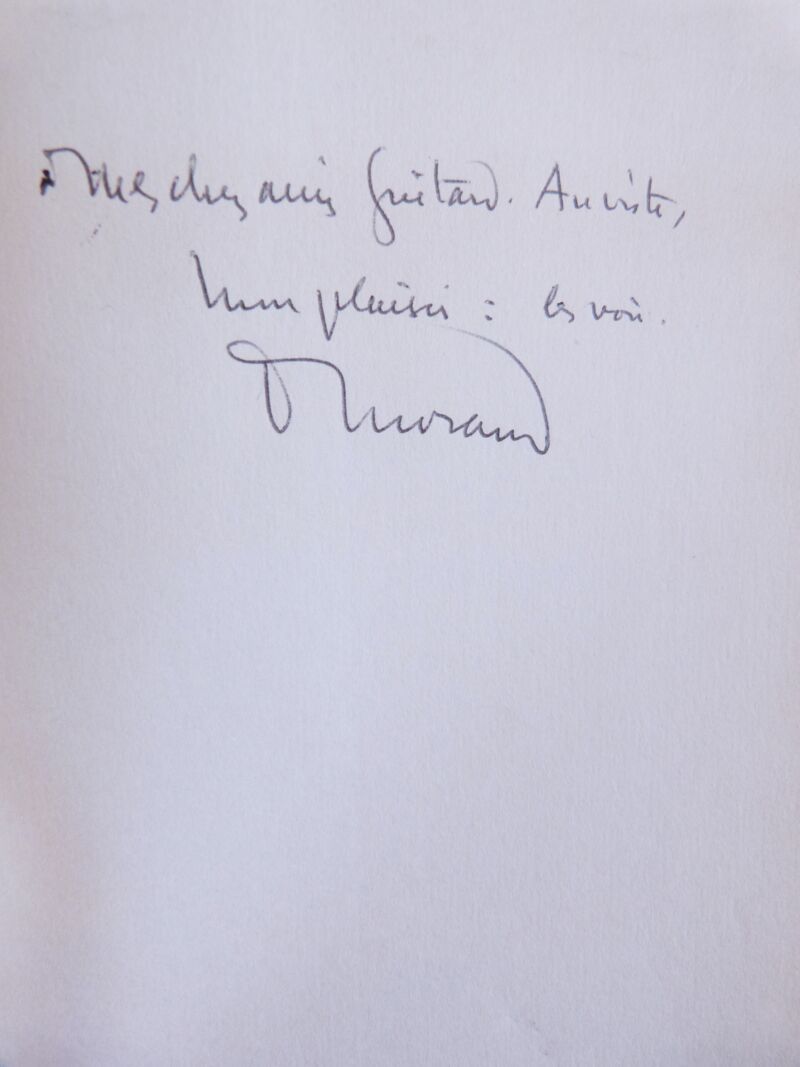 à mes chers amis Guitard-Auviste,
mon plaisir : les voir.
P Morand